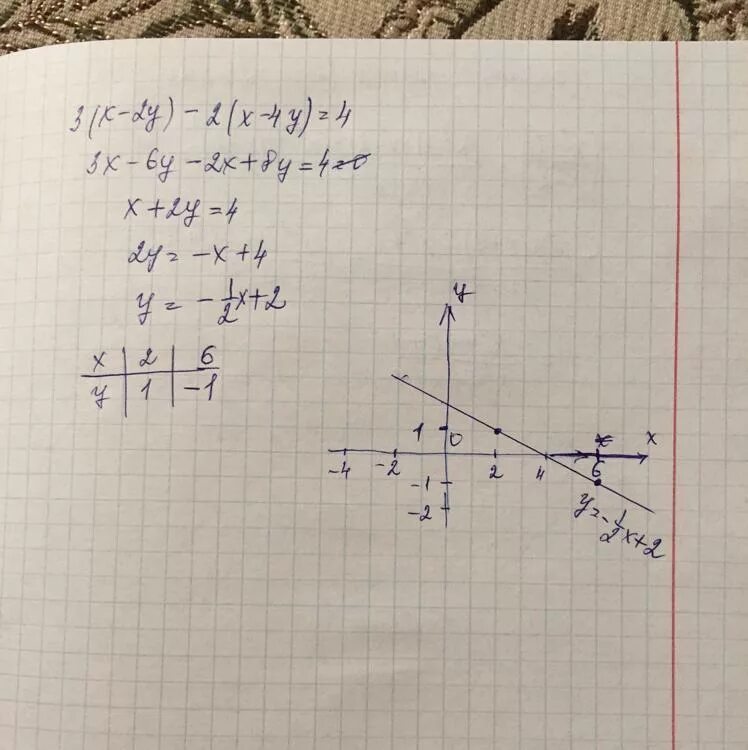 3(x-2y) - 2(x-4y)=4
3x-6y-2x+8y=4=0
x+2y=4
2y = -x+4
y = -1/2x+2
x | 2 | 6
y | 1 | -1
y
1 0 x x
-4 -2 2 4 6
-1
-2
y=-1/2x+2